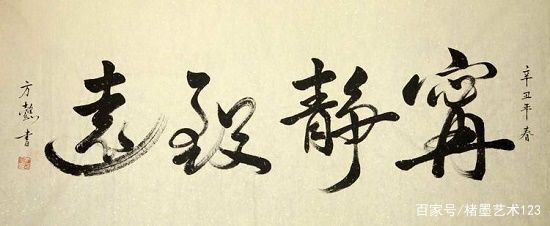 辛丑年春
寧静致遠
方懿书
百家号/楮墨艺术123